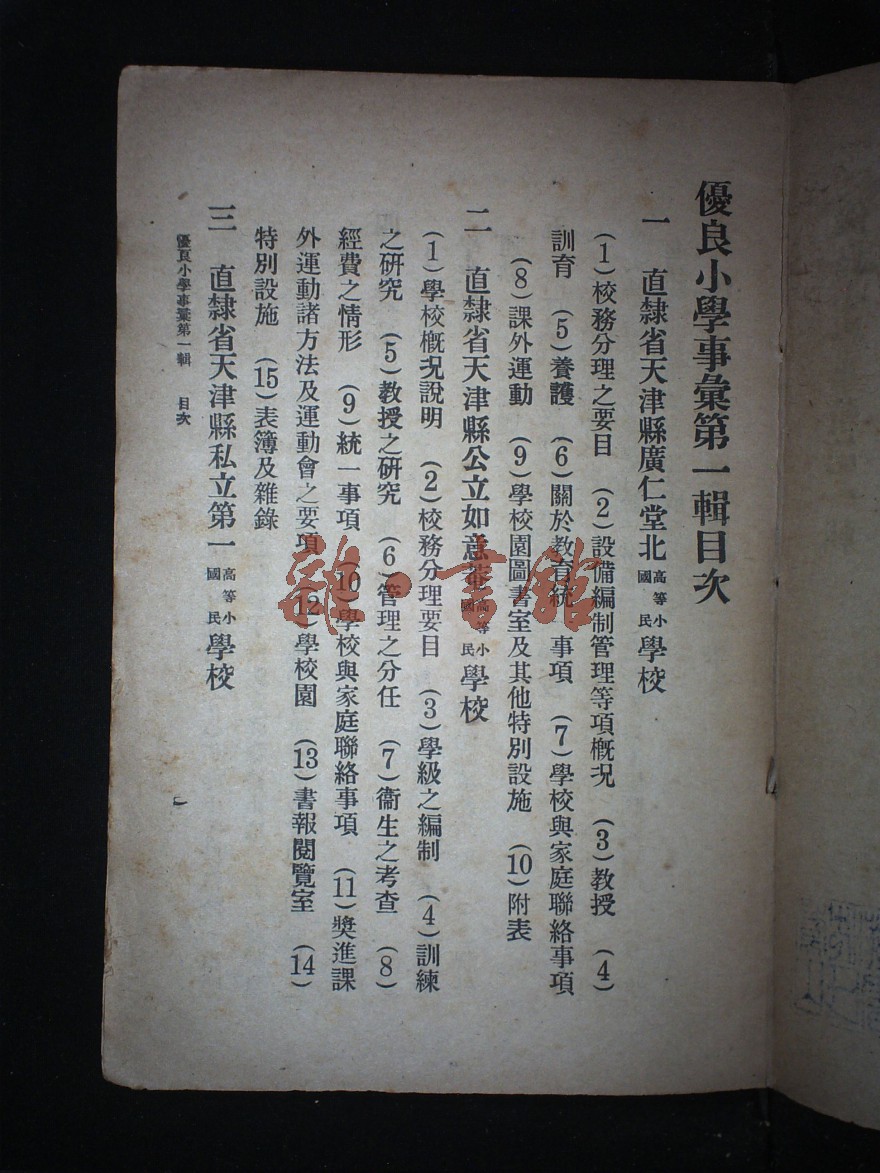 優良小學事彙第一輯目次
一 直隸省天津縣廣仁堂北高等小國民學校
(1)校務分理之要目 (2)設備編制管理等項概況 (3)教授 (4)
訓育 (5)養護 (6)關於教育統 事項 (7)學校與家庭聯絡事項
(8)課外運動 (9)學校園圖書室及其他特別設施 (10)附表
二 直隸省天津縣公立如意菴高等小國民學校
(1)學校概況說明 (2)校務分理要目 (3)學級之編制 (4)訓練
之研究 (5)教授之研究 (6)管理之分任 (7)衞生之考查 (8)
經費之情形 (9)統一事項 (10)學校與家庭聯絡事項 (11)獎進課
外運動諸方法及運動會之要項 (12)學校園 (13)書報閱覽室 (14)
特別設施 (15)表簿及雜錄
三 直隸省天津縣私立第一高等小國民學校
優良小學事彙第一輯 目次
一
雜·書館